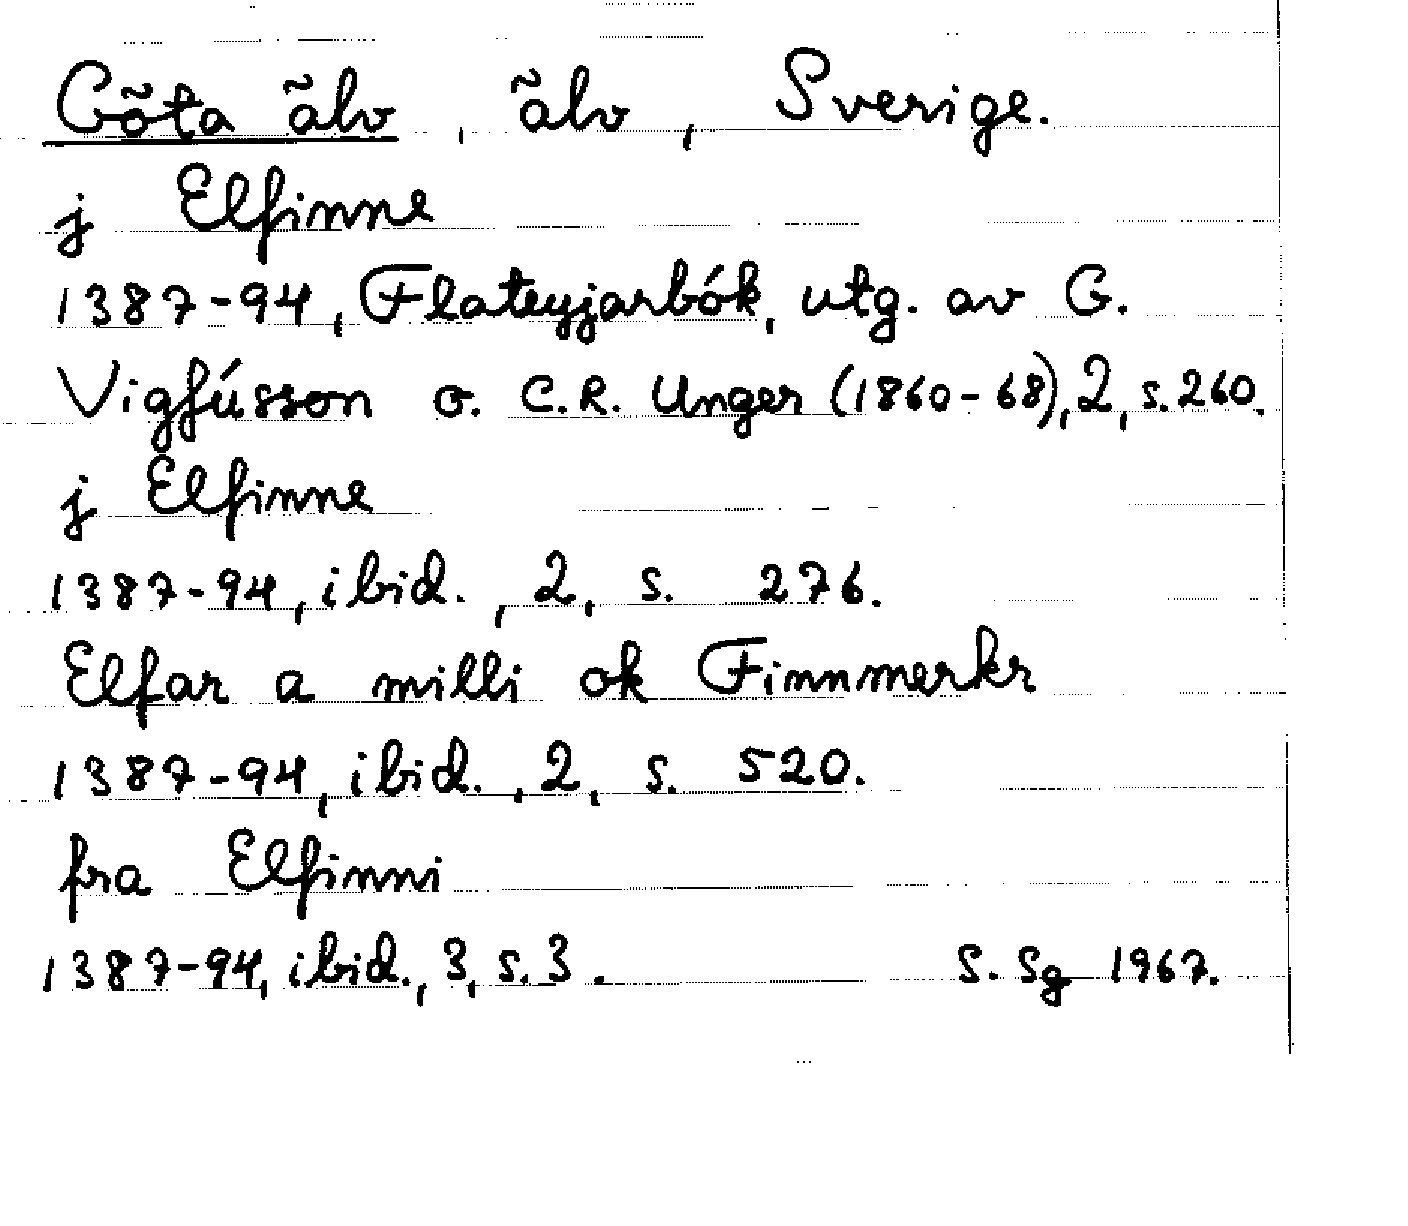 Göta älv, älv, Sverige.
j Elfinne
1387-94, Flateyjarbók, utg. av G.
Vigfússon o. C.R. Unger (1860-68), 2, s. 260.
j Elfinne
1387-94, ibid., 2, s. 276.
Elfar a milli ok Finnmerkr
1387-94, ibid., 2, s. 520.
fra Elfinni
1387-94, ibid., 3, s. 3. S. Sg 1967.